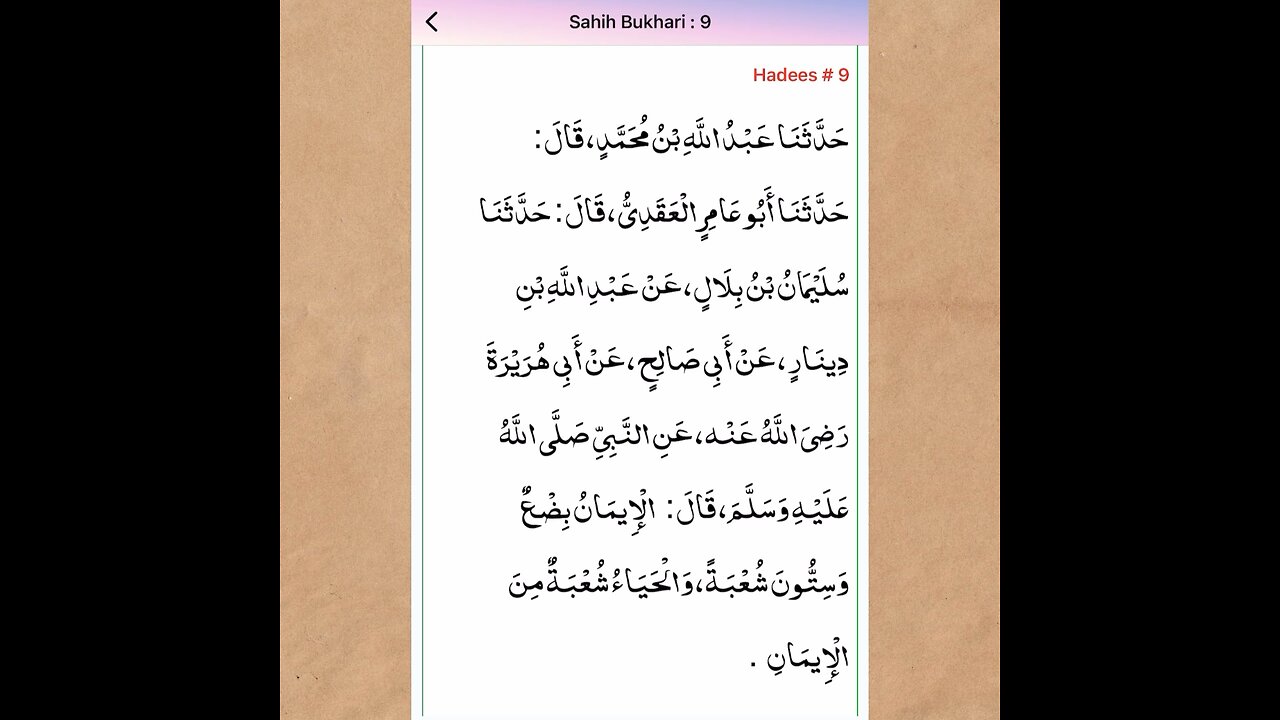 Sahih Bukhari : 9
Hadees # 9
حَدَّثَنَا عَبْدُ اللَّهِ بْنُ مُحَمَّدٍ، قَالَ:
حَدَّثَنَا أَبُو عَامِرٍ الْعَقَدِيُّ، قَالَ: حَدَّثَنَا
سُلَيْمَانُ بْنُ بِلَالٍ، عَنْ عَبْدِ اللَّهِ بْنِ
دِينَارٍ، عَنْ أَبِي صَالِحٍ، عَنْ أَبِي هُرَيْرَةَ
رَضِيَ اللَّهُ عَنْه، عَنِ النَّبِيِّ صَلَّى اللَّهُ
عَلَيْهِ وَسَلَّمَ، قَالَ: الْإِيمَانُ بِضْعٌ
وَسِتُّونَ شُعْبَةً، وَالْحَيَاءُ شُعْبَةٌ مِنَ
الْإِيمَانِ .